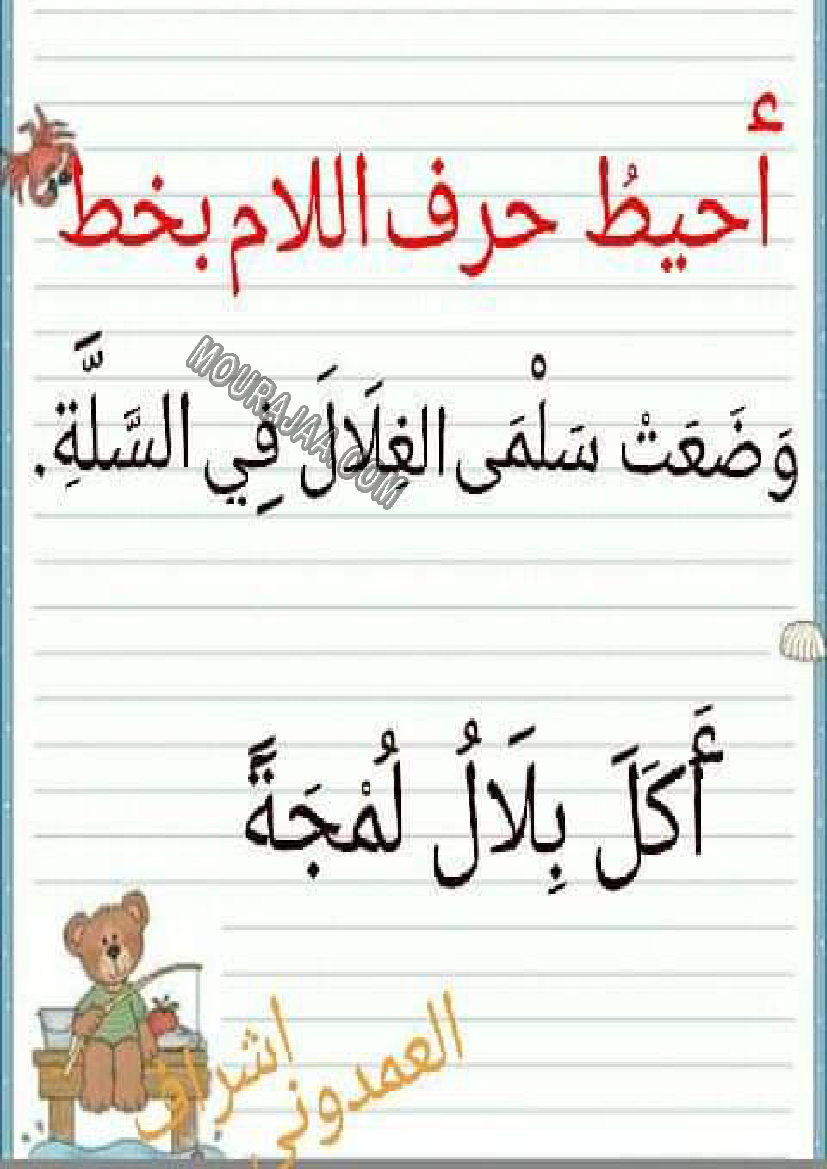 أحيطُ حرف اللام بخط
وَضَعَتْ سَلْمَى الغِلَالَ فِي السَّلَّةِ.
MOURAJAA.COM
أَكَلَ بِلَالُ لُمْجَةً
اشراق
العمدوني